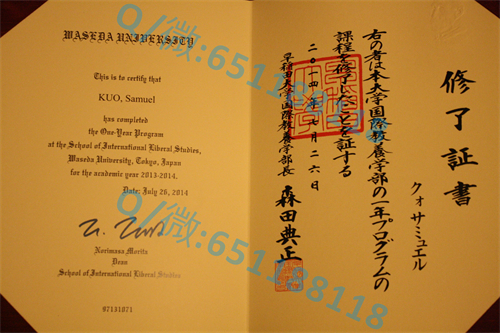 WASEDA UNIVERSITY
This is to certify that
KUO, Samuel
has completed
the One-Year Program
at the School of International Liberal Studies,
Waseda University, Tokyo, Japan
for the academic year 2013-2014.
Date: July 26, 2014
Norimasa Morita
Dean
School of International Liberal Studies
97131071
修了証書
クォサミュエル
右の者は本大学国際教養学部の一年プログラムの
課程を修了したことを証する
二〇一四年七月二六日
早稲田大学国際教養学部長
森田典正
Q/微:
Q/微: